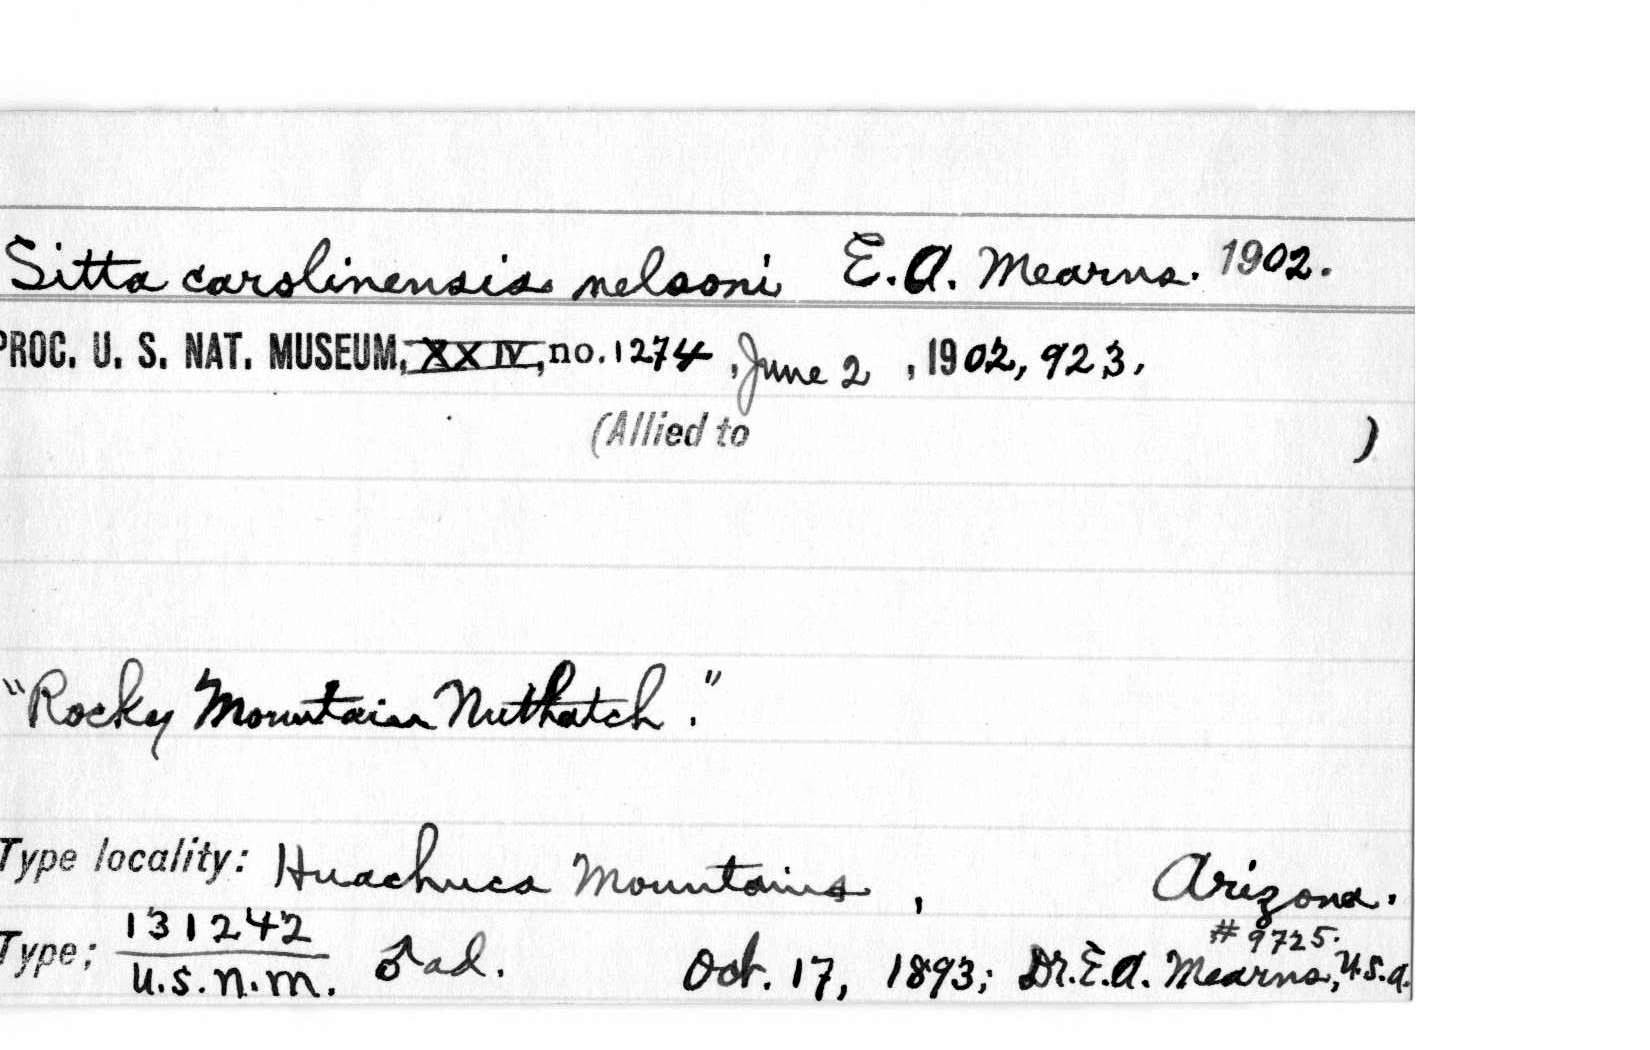 Sitta carolinensis nelsoni E. A. Mearns. 1902.
PROC. U. S. NAT. MUSEUM, XXIV, no. 1274, June 2, 1902, 923.
(Allied to )
"Rocky Mountain Nuthatch."
Type locality: Huachuca Mountains, Arizona.
# 9725.
Type: 131242 / U.S.N.M. ♂ ad. Oct. 17, 1893; Dr. E. A. Mearns, U.S.A.